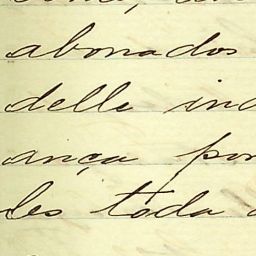 abonados
delle ind
ança por
les toda